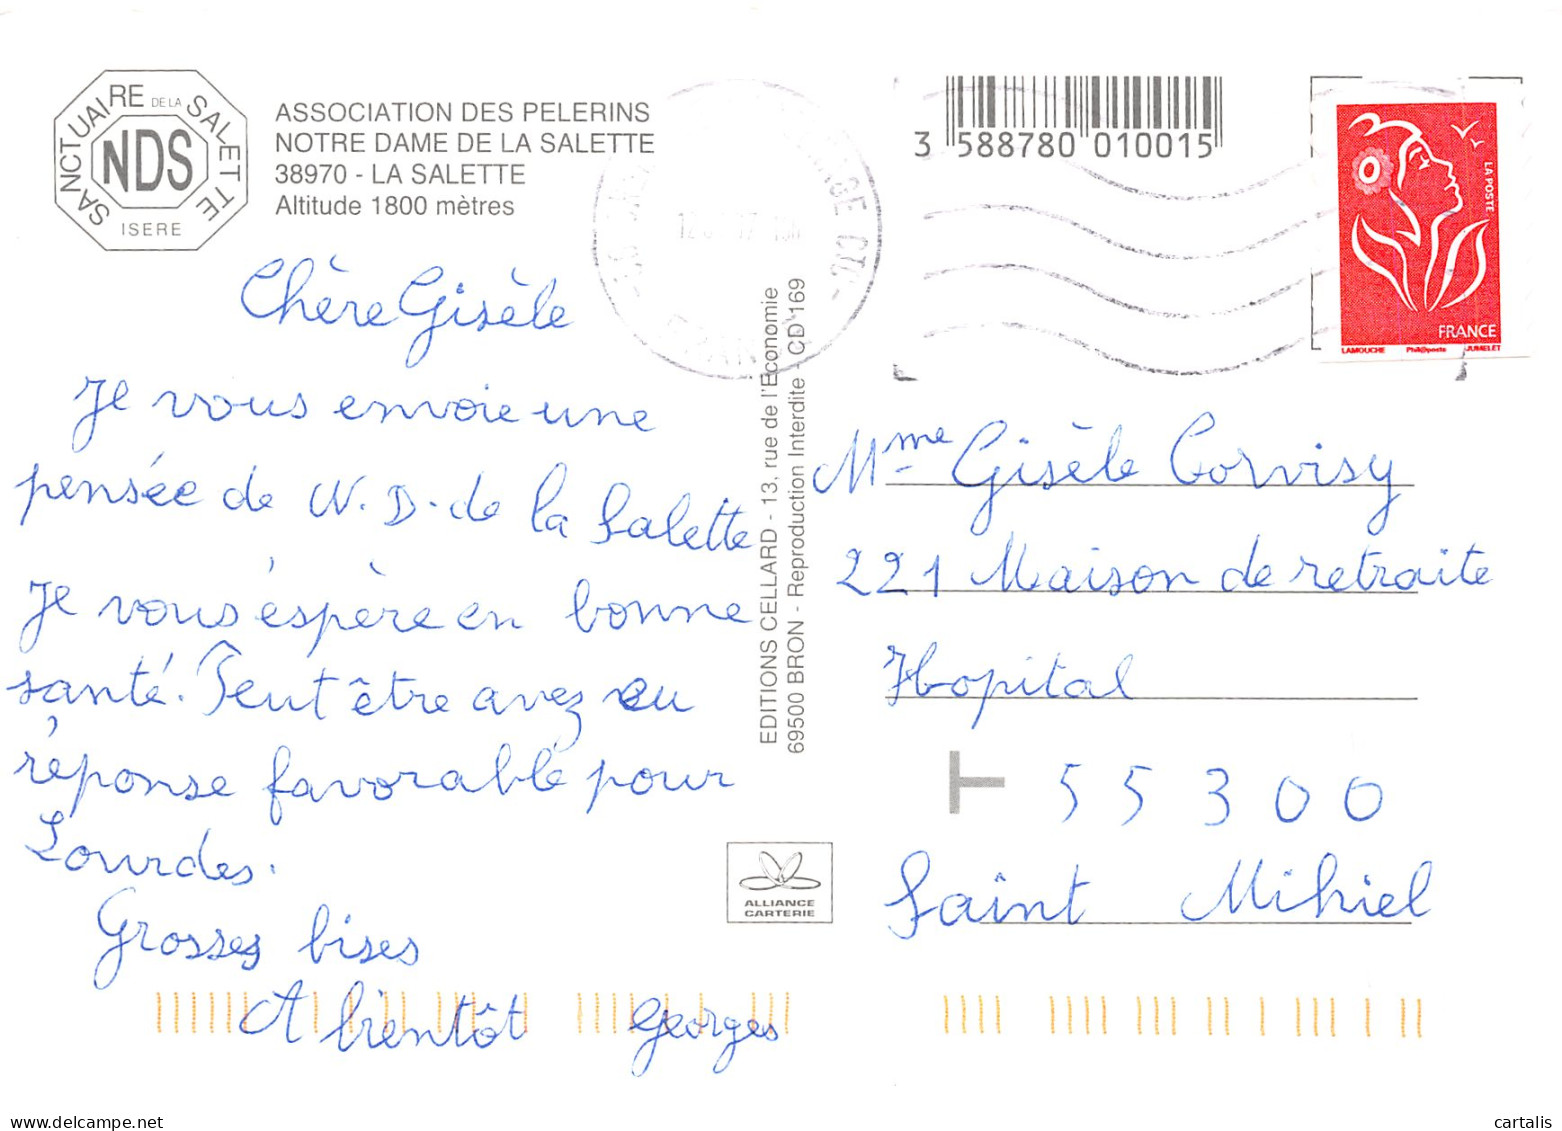 SANCTUAIRE DE LA SALETTE
NDS
ISERE
ASSOCIATION DES PELERINS
NOTRE DAME DE LA SALETTE
38970 - LA SALETTE
Altitude 1800 mètres
3 588780 010015
LA POSTE
FRANCE
LAMOUCHE Phil@poste JUMELET
Chère Gisèle
Je vous envoie une
pensée de N.D. de la Salette
Je vous éspère en bonne
santé. Peut être avez eu
réponse favorable pour
Lourdes.
Grosses bises
A bientôt Georges
EDITIONS CELLARD - 13, rue de l'Economie
69500 BRON - Reproduction Interdite - CD 169
Mme Gisèle Corvisy
221 Maison de retraite
Hopital
55300
Saint Mihiel
ALLIANCE
CARTERIE
delcampe.net
cartalis